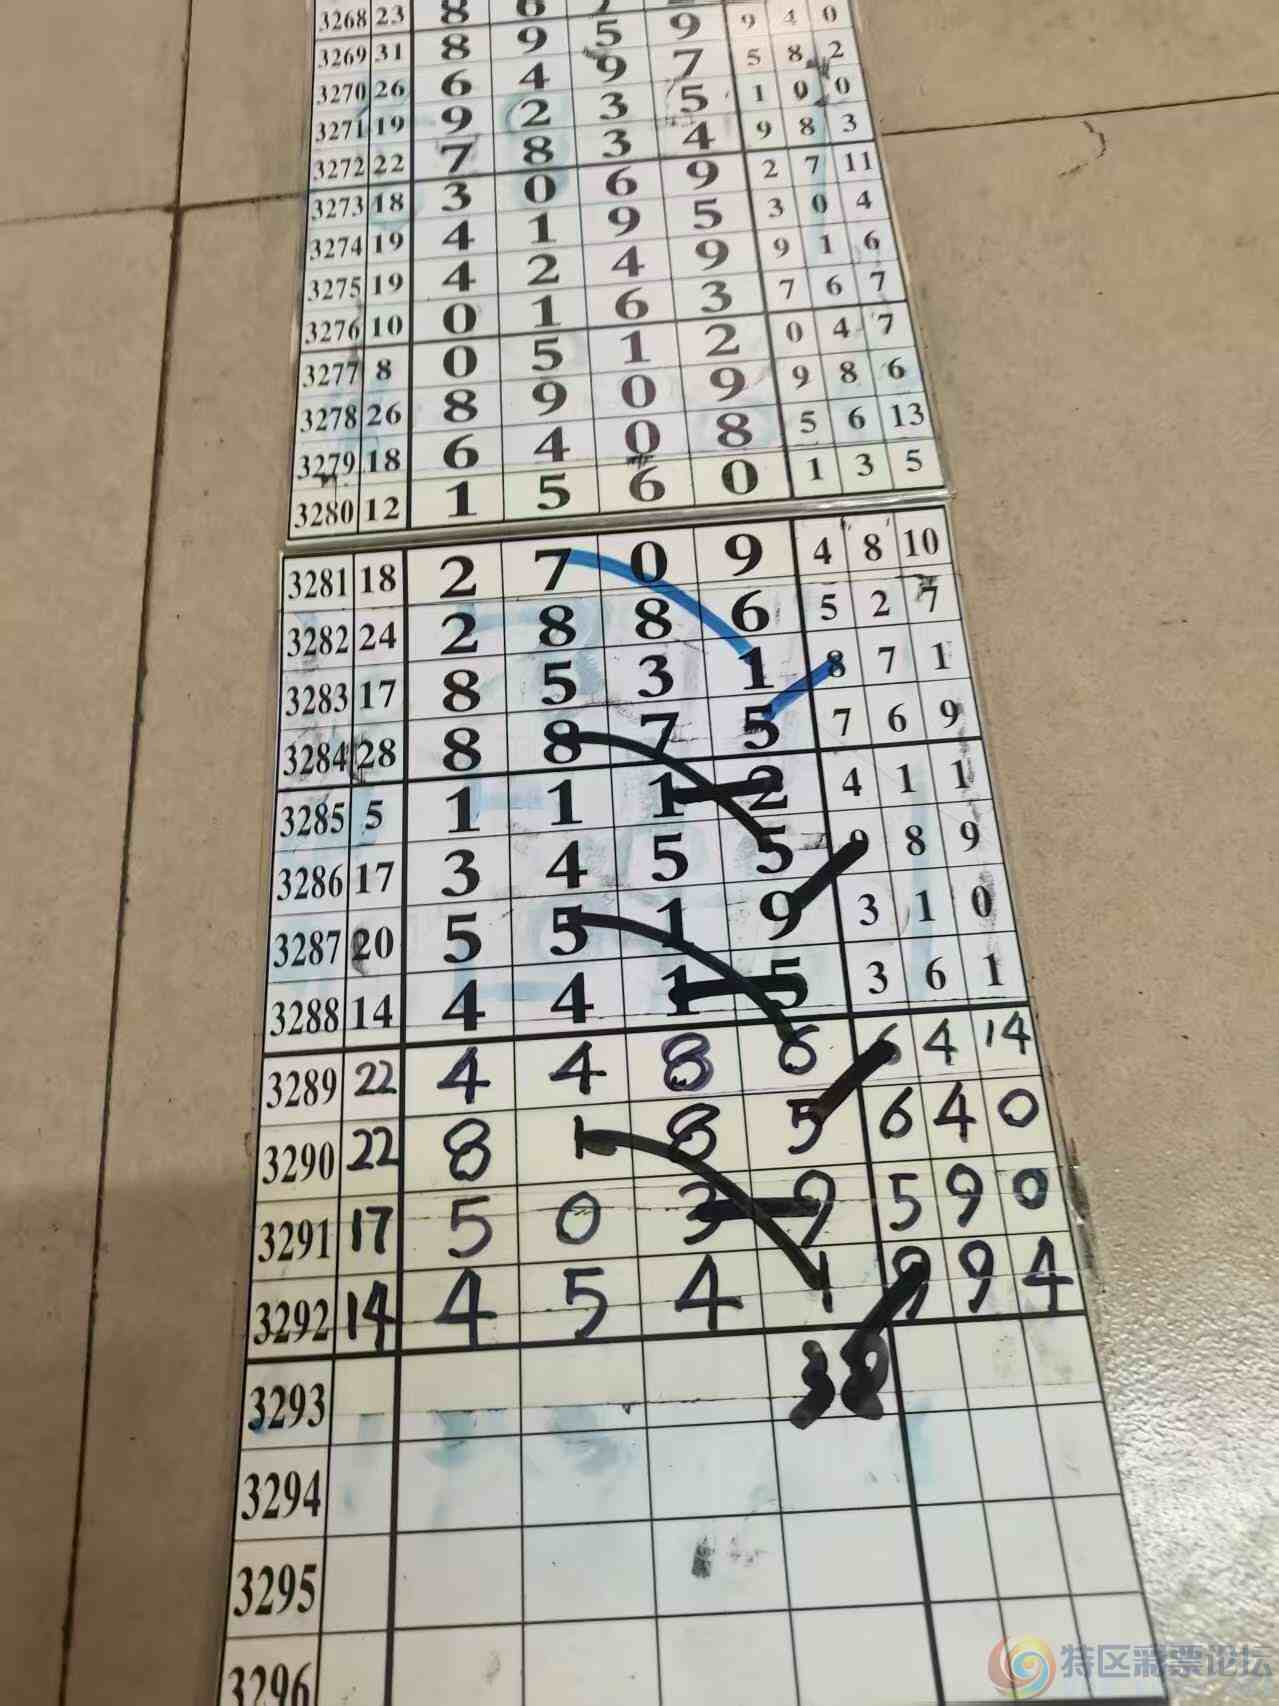 3268 23 8 6 9 4 0
3269 31 8 9 5 9 5 8 2
3270 26 6 4 9 7 1 9 0
3271 19 9 2 3 5 9 8 3
3272 22 7 8 3 4 2 7 11
3273 18 3 0 6 9 3 0 4
3274 19 4 1 9 5 9 1 6
3275 19 4 2 4 9 7 6 7
3276 10 0 1 6 3 0 4 7
3277 8 0 5 1 2 9 8 6
3278 26 8 9 0 9 5 6 13
3279 18 6 4 0 8 1 3 5
3280 12 1 5 6 0
3281 18 2 7 0 9 4 8 10
3282 24 2 8 8 6 5 2 7
3283 17 8 5 3 1 8 7 1
3284 28 8 8 7 5 7 6 9
3285 5 1 1 1 2 4 1 1
3286 17 3 4 5 5 9 8 9
3287 20 5 5 1 9 3 1 0
3288 14 4 4 1 5 3 6 1
3289 22 4 4 8 6 6 4 14
3290 22 8 1 8 5 6 4 0
3291 17 5 0 3 9 5 9 0
3292 14 4 5 4 1 9 9 4
3293 38
3294
3295
3296
特区彩票论坛